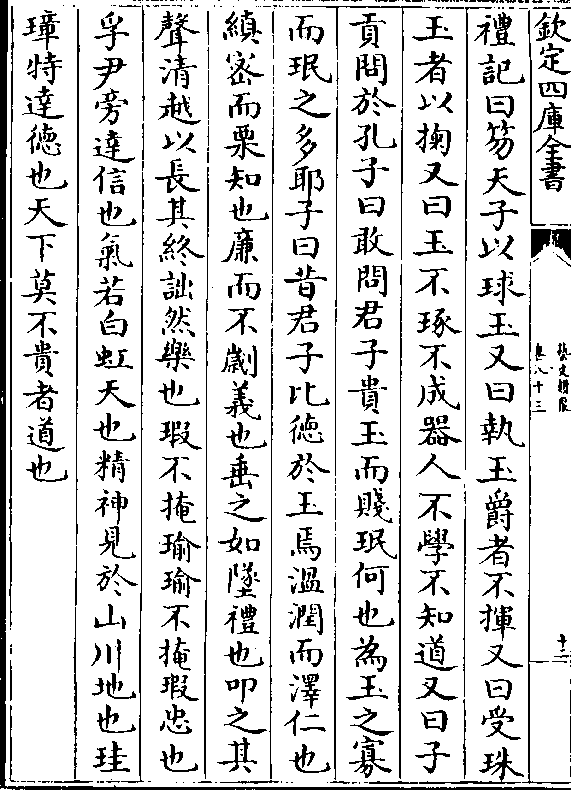 欽定四庫全書
藝文類聚
卷八十三
十二
禮記曰笏天子以球玉又曰執玉爵者不揮又曰受珠
玉者以掬又曰玉不琢不成器人不學不知道又曰子
貢問於孔子曰敢問君子貴玉而賤珉何也為玉之寡
而珉之多耶子曰昔君子比德於玉焉溫潤而澤仁也
縝宻而栗知也廉而不劌義也垂之如墜禮也叩之其
聲清越以長其終詘然樂也瑕不掩瑜瑜不掩瑕忠也
孚尹旁達信也氣若白虹天也精神見於山川地也珪
璋特達德也天下莫不貴者道也